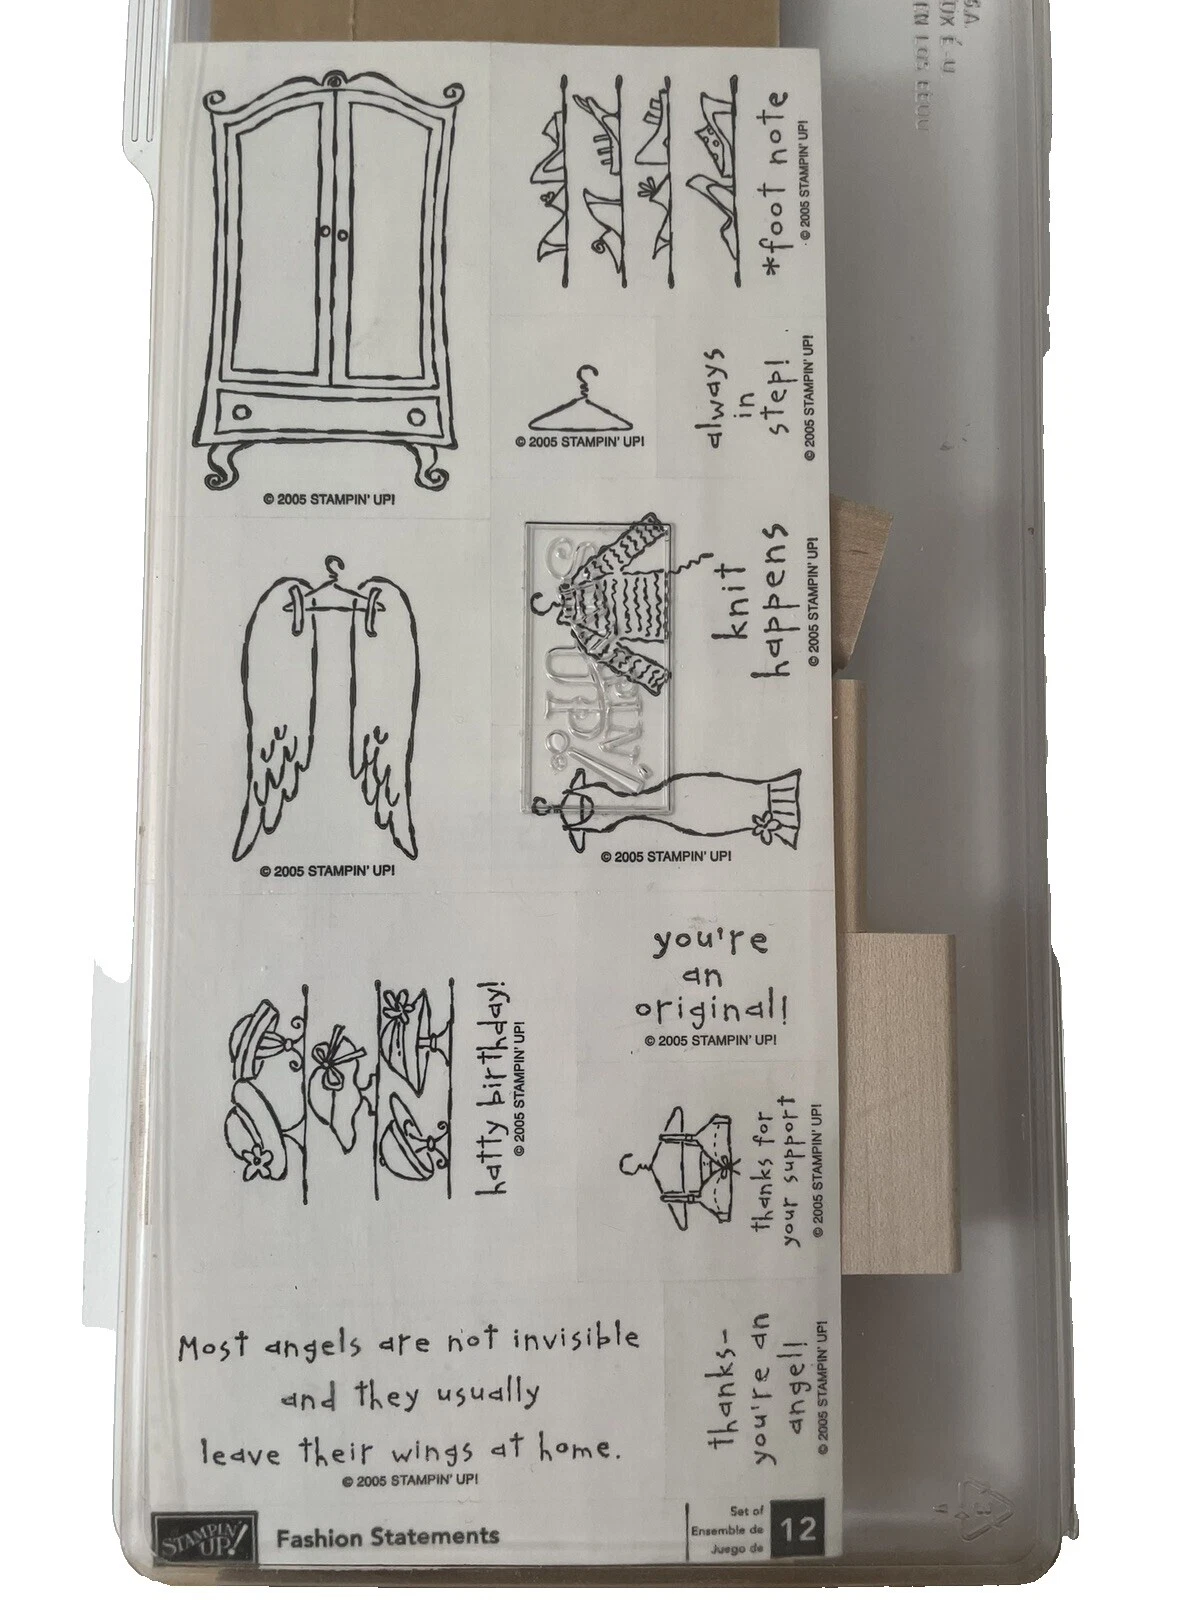 *foot note
© 2005 STAMPIN' UP!
always
in
step!
© 2005 STAMPIN' UP!
© 2005 STAMPIN' UP!
© 2005 STAMPIN' UP!
knit
happens
© 2005 STAMPIN' UP!
STAMPIN' UP!
© 2005 STAMPIN' UP!
© 2005 STAMPIN' UP!
you're
an
original!
© 2005 STAMPIN' UP!
hatty birthday!
© 2005 STAMPIN' UP!
thanks for
your support
© 2005 STAMPIN' UP!
Most angels are not invisible
and they usually
leave their wings at home.
© 2005 STAMPIN' UP!
thanks-
you're an
angel!
© 2005 STAMPIN' UP!
STAMPIN' UP!
Fashion Statements
Set of
Ensemble de
Juego de
12